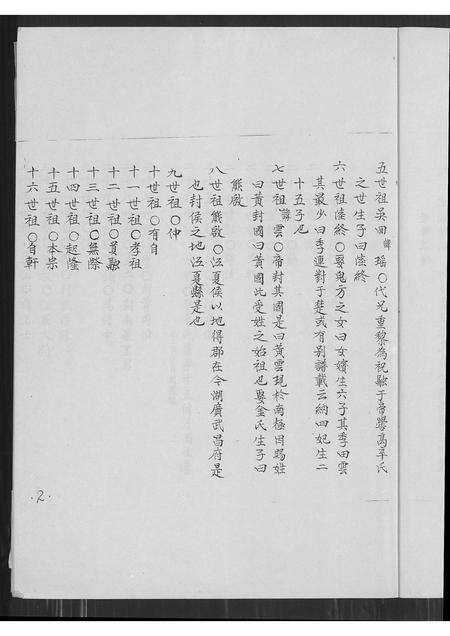 五世祖吳回諱瑤○代兄重黎為祝融于帝嚳高辛氏
之世生子曰陸終
六世祖陸終○娶鬼方之女曰女嬇生六子其季曰雲
其最少曰季連對于楚或有別譜載云納四妃生二
十五子也
七世祖諱雲○帝封其國是曰黃雲現於南極因賜姓
曰黃封國曰黃國此受姓之始祖也娶金氏生子曰
熊啟
八世祖熊啟○江夏侯以地得郡在今湖廣武昌府是
也封侯之地江夏縣是也
九世祖○仲
十世祖○有自
十一世祖○孝祖
十二世祖○貢融
十三世祖○無際
十四世祖○起隆
十五世祖○本宗
十六世祖○自軒
.2.